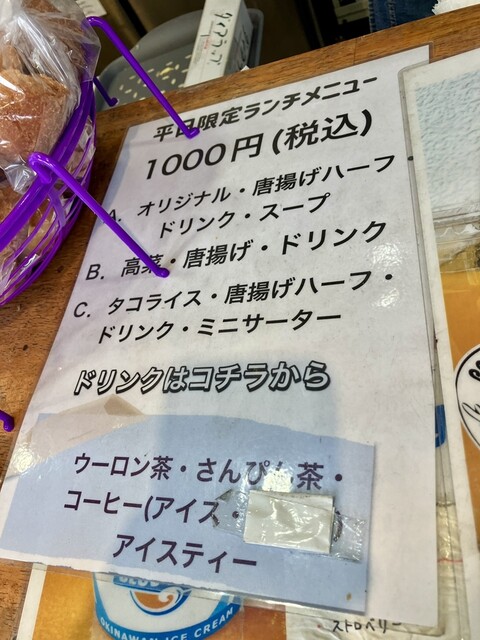 平日限定ランチメニュー
1000円(税込)
A. オリジナル・唐揚げハーフ
ドリンク・スープ
B. 高菜・唐揚げ・ドリンク
C. タコライス・唐揚げハーフ・
ドリンク・ミニサーター
ドリンクはコチラから
ウーロン茶・さんぴん茶・
コーヒー(アイス・
アイスティー
BLUE
OKINAWAN ICE CREAM
ストロベリー